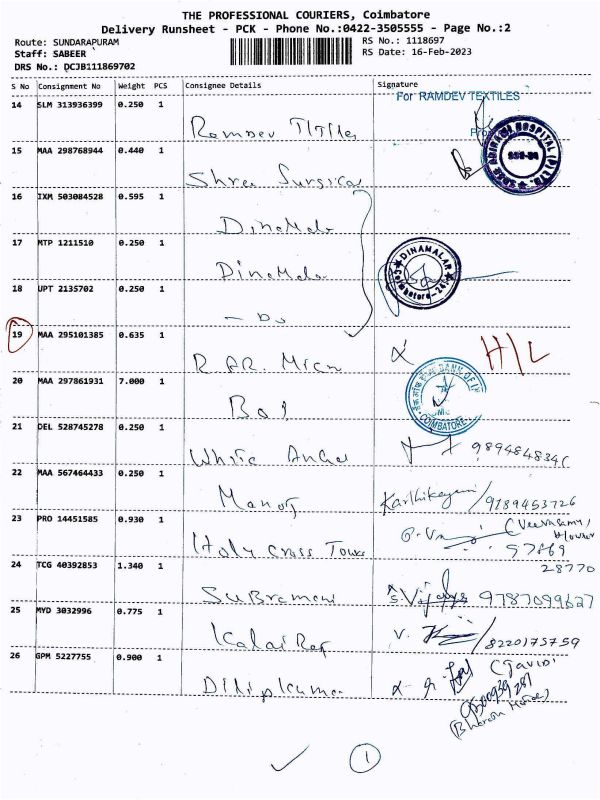 THE PROFESSIONAL COURIERS, Coimbatore
Delivery Runsheet - PCK - Phone No.:0422-3505555 - Page No.:2
Route: SUNDARAPURAM RS No.: 1118697
Staff: SABEER RS Date: 16-Feb-2023
DRS No.: DCJB111869702
S No Consignment No Weight PCS Consignee Details Signature
For RAMDEV TEXTILES
14 SLM 313936399 0.250 1
Ramdev
15 MAA 298768944 0.440 1
HOSPITAL (P) LTD.
Shree Surgical
16 IXM 503084528 0.595 1
DinaMala
17 MTP 1211510 0.250 1
DINAMALAR
Coimbatore-24
DinaMala
18 UPT 2135702 0.250 1
- Do
19 MAA 295101385 0.635 1
H/L
R AR. Micn
20 MAA 297861931 7.000 1
BANK OF I
COIMBATORE
BOI
21 DEL 528745278 0.250 1
White Angel
22 MAA 567464433 0.250 1
Manoj Karthikeyani/9189453726
23 PRO 14451585 0.930 1
Holy Cross Tower 57869
24 TCG 40392853 1.340 1 28770
Subramani 9787099627
25 MYD 3032996 0.775 1
KalaiRaj V. /8220175759
26 GPM 5227755 0.900 1
Dilipkumar
1